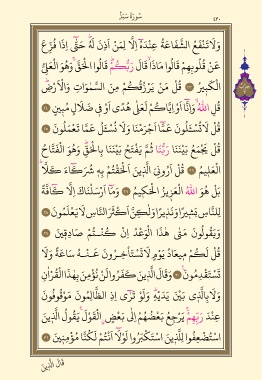 سُورَةُ سَبَإٍ
٤٣٠
وَلَا تَنْفَعُ الشَّفَاعَةُ عِنْدَهُ إِلَّا لِمَنْ أَذِنَ لَهُ حَتَّى إِذَا فُزِّعَ
عَنْ قُلُوبِهِمْ قَالُوا مَاذَا قَالَ رَبُّكُمْ قَالُوا الْحَقَّ وَهُوَ الْعَلِيُّ
الْكَبِيرُ ۞ قُلْ مَنْ يَرْزُقُكُمْ مِنَ السَّمٰوَاتِ وَالْأَرْضِ
قُلِ اللهُ وَإِنَّا أَوْ إِيَّاكُمْ لَعَلٰى هُدًى أَوْ فِي ضَلَالٍ مُبِينٍ
قُلْ لَا تُسْئَلُونَ عَمَّا أَجْرَمْنَا وَلَا نُسْئَلُ عَمَّا تَعْمَلُونَ
قُلْ يَجْمَعُ بَيْنَنَا رَبُّنَا ثُمَّ يَفْتَحُ بَيْنَنَا بِالْحَقِّ وَهُوَ الْفَتَّاحُ
الْعَلِيمُ ۞ قُلْ أَرُونِيَ الَّذِينَ أَلْحَقْتُمْ بِهِ شُرَكَاءَ كَلَّا
بَلْ هُوَ اللهُ الْعَزِيزُ الْحَكِيمُ ۞ وَمَا أَرْسَلْنَاكَ إِلَّا كَافَّةً
لِلنَّاسِ بَشِيرًا وَنَذِيرًا وَلٰكِنَّ أَكْثَرَ النَّاسِ لَا يَعْلَمُونَ
وَيَقُولُونَ مَتٰى هٰذَا الْوَعْدُ إِنْ كُنْتُمْ صَادِقِينَ
قُلْ لَكُمْ مِيعَادُ يَوْمٍ لَا تَسْتَأْخِرُونَ عَنْهُ سَاعَةً وَلَا
تَسْتَقْدِمُونَ ۞ وَقَالَ الَّذِينَ كَفَرُوا لَنْ نُؤْمِنَ بِهٰذَا الْقُرْاٰنِ
وَلَا بِالَّذِي بَيْنَ يَدَيْهِ وَلَوْ تَرٰى إِذِ الظَّالِمُونَ مَوْقُوفُونَ
عِنْدَ رَبِّهِمْ يَرْجِعُ بَعْضُهُمْ إِلٰى بَعْضٍ الْقَوْلَ يَقُولُ الَّذِينَ
اسْتُضْعِفُوا لِلَّذِينَ اسْتَكْبَرُوا لَوْلَا أَنْتُمْ لَكُنَّا مُؤْمِنِينَ
قَالَ الَّذِينَ